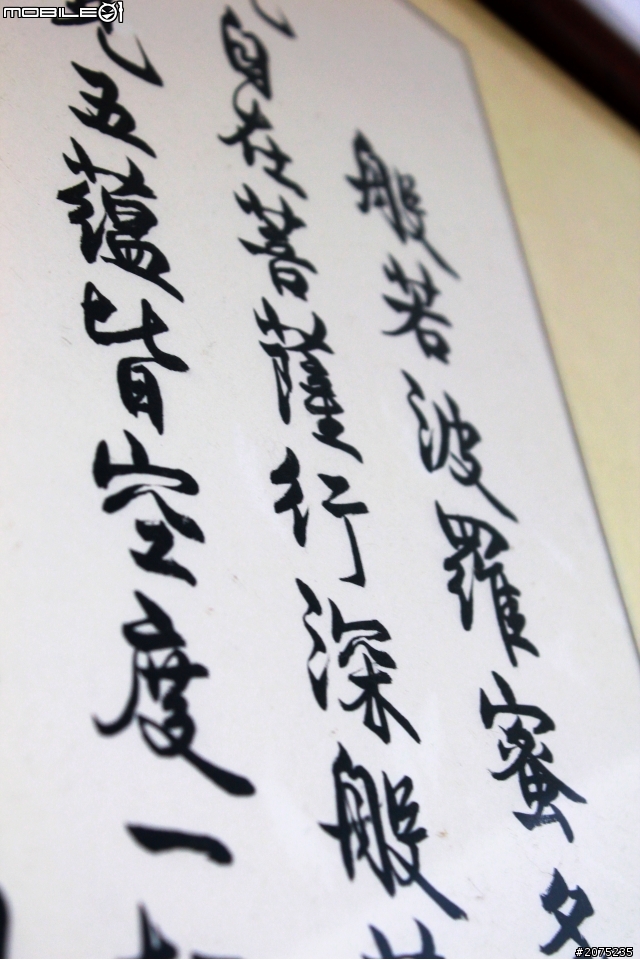 般若波羅蜜多
自在菩薩行深般若
見五蘊皆空度一切
MOBILE01
#2075235